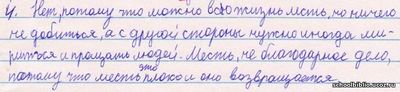 4. Нет, потому что можно всю жизнь мстить, но ничего
не добиться, а с другой стороны нужно иногда ми-
риться и прощать людей. Месть, не благодарное дело,
потому что месть это плохо и оно возвращается.
schoolbiblio.ucoz.ru